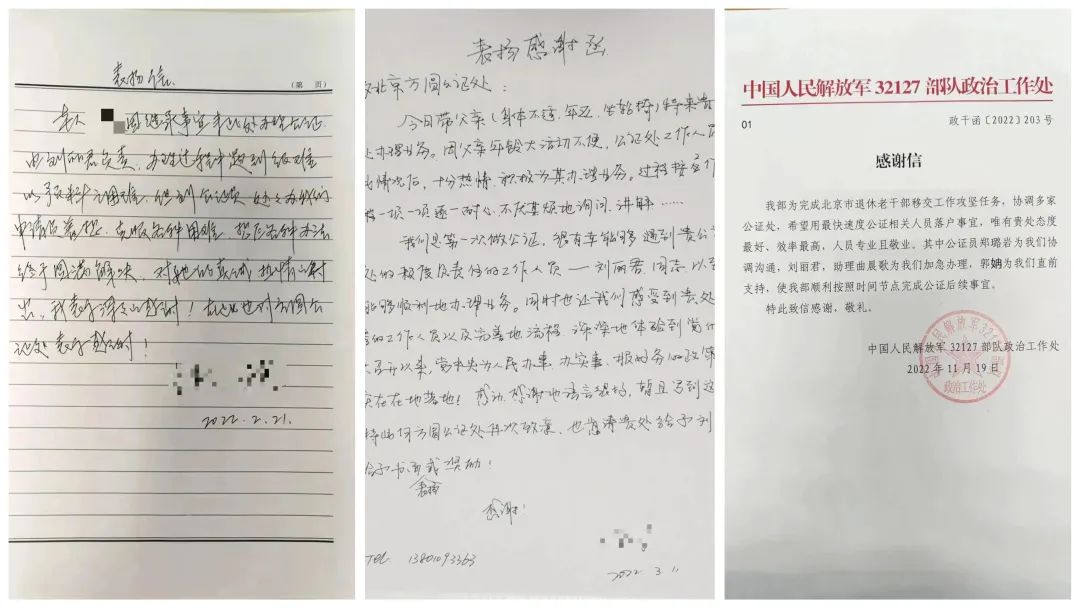 表扬信
(第 页)
本人 因继承事宜来此处办理公证
由刘丽君负责，办理过程中遇到了
以
申请
给予圆满解决，对她的真诚热情的付
出，我表示深深的感谢！在此也对方圆公
证处表示感谢！
2022.2.21.
表扬感谢函
致北京方圆公证处：
今日带父亲(身体不适、年迈、坐轮椅)特来贵
处办理业务。因父亲年龄大活动不便，公证处工作人员
情况后，十分热情、积极为其办理业务。过程
一项一项逐一耐心、不厌其烦地询问、讲解……
我们是第一次做公证，很有幸能够遇到贵公
处的极度负责任的工作人员——刘丽君 同志，以至
能够顺利地办理业务。同时也让我们感受到贵处
的工作人员以及完善地流程，深深地体验到党十
大召开以来，党中央为人民办事、办实事、
实在在地落地！感动、感谢地语言很多，暂且写到这
特此向方圆公证处再次致意，也恳请贵处给予刘
给予书面或奖励！
表扬
感谢！
TEL 13801093363
2022 3 11
中国人民解放军 32127 部队政治工作处
01
政干函〔2022〕203 号
感谢信
我部为完成北京市退休老干部移交工作攻坚任务，协调多家
公证处，希望用最快速度公证相关人员落户事宜，唯有贵处态度
最好、效率最高，人员专业且敬业。其中公证员郑璐岩为我们协
调沟通，刘丽君，助理曲晨歌为我们加急办理，郭妠为我们直前
支持，使我部顺利按照时间节点完成公证后续事宜。
特此致信感谢，敬礼。
中国人民解放军 32127 部队政治工作处
2022 年 11 月 19 日
政治工作处